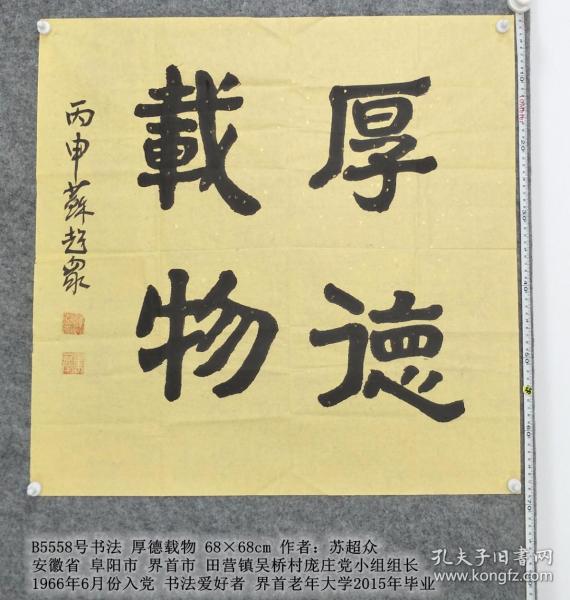 厚德
載物
丙申蘇超眾
B5558号书法 厚德载物 68×68cm 作者：苏超众
安徽省 阜阳市 界首市 田营镇吴桥村庞庄党小组组长
1966年6月份入党 书法爱好者 界首老年大学2015年毕业
孔夫子旧书网
www.kongfz.com